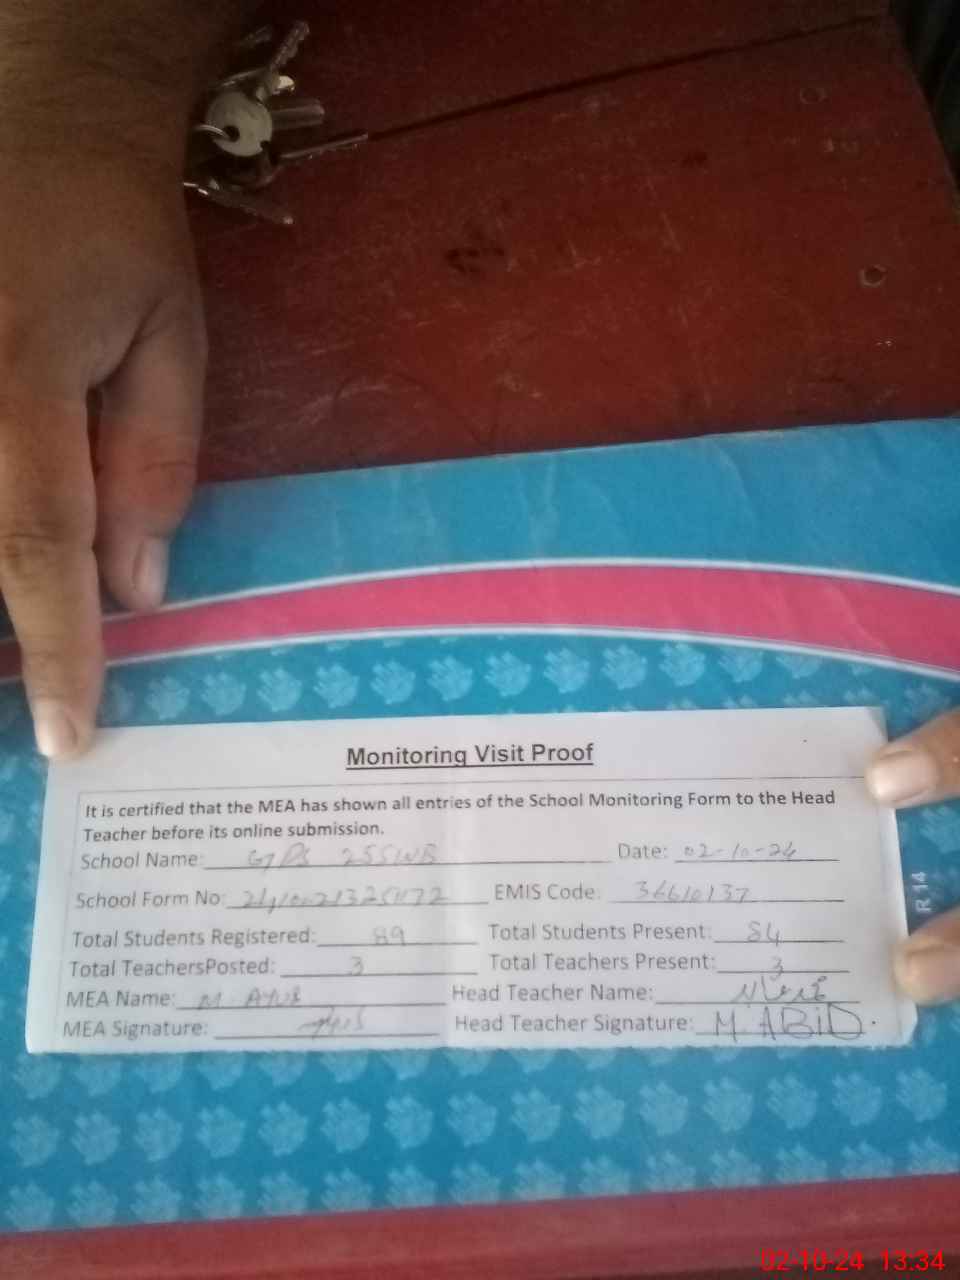 Monitoring Visit Proof
It is certified that the MEA has shown all entries of the School Monitoring Form to the Head
Teacher before its online submission.
School Name: Date: 02-10-24
School Form No: EMIS Code: 36610137
Total Students Registered: 89 Total Students Present: 84
Total TeachersPosted: 3 Total Teachers Present: 3
MEA Name: M. AYUB Head Teacher Name:
MEA Signature: Head Teacher Signature: M. ABiD.
R 14
02-10-24 13:34